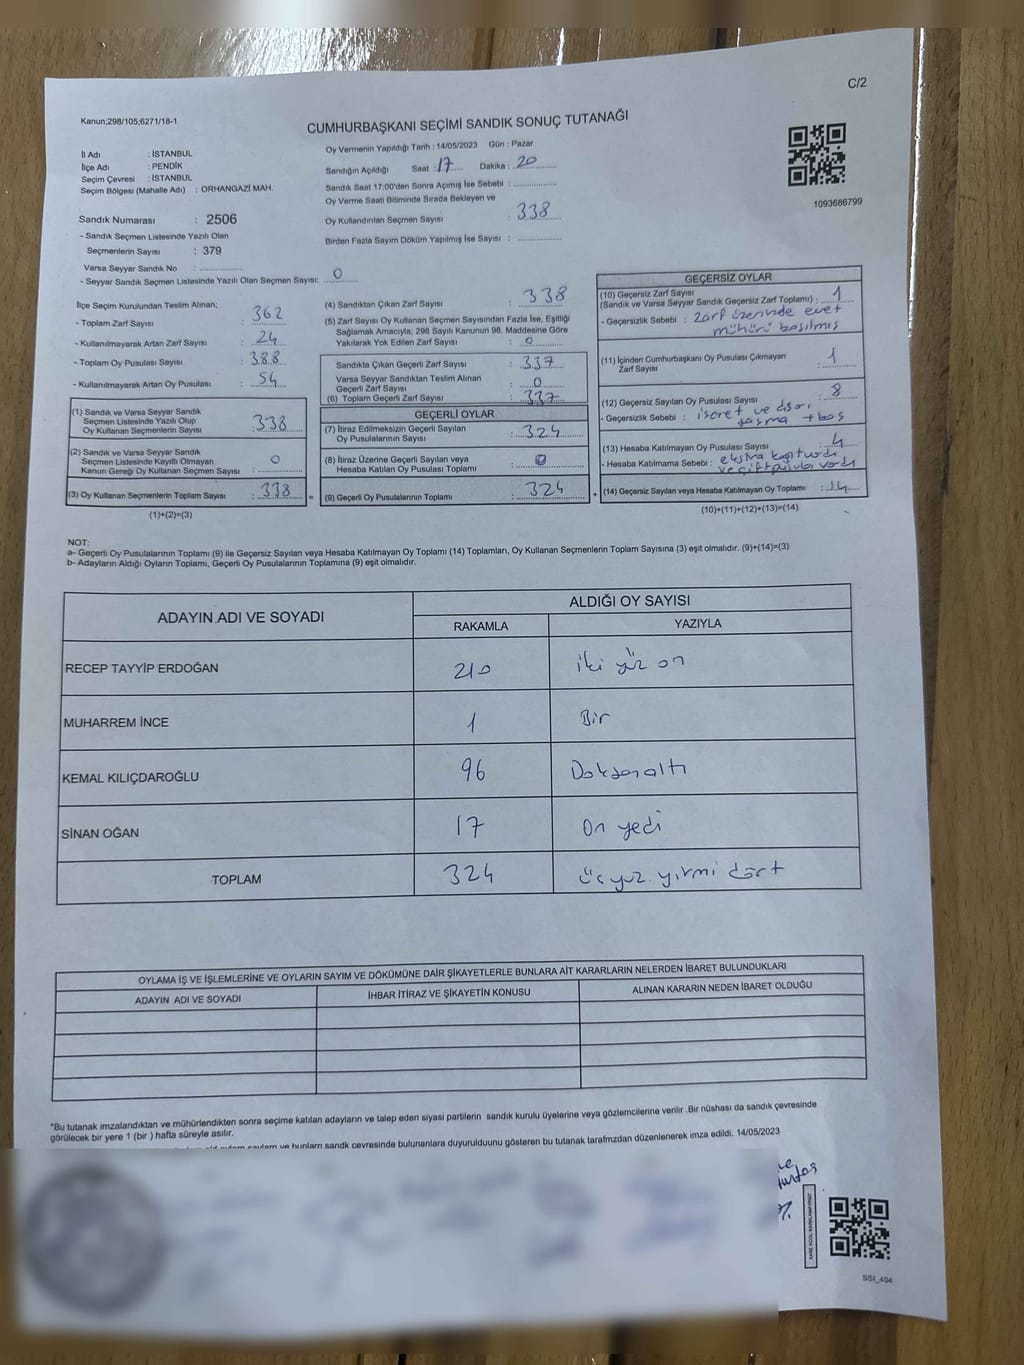 C/2
Kanun;298/105;6271/18-1
CUMHURBAŞKANI SEÇİMİ SANDIK SONUÇ TUTANAĞI
İl Adı : İSTANBUL
İlçe Adı : PENDİK
Seçim Çevresi : İSTANBUL
Seçim Bölgesi (Mahalle Adı) : ORHANGAZİ MAH.
Sandık Numarası : 2506
- Sandık Seçmen Listesinde Yazılı Olan
Seçmenlerin Sayısı : 379
Varsa Seyyar Sandık No :
- Seyyar Sandık Seçmen Listesinde Yazılı Olan Seçmen Sayısı: 0
Oy Vermenin Yapıldığı Tarih : 14/05/2023 Gün : Pazar
Sandığın Açıldığı Saat : 17 Dakika : 20
Sandık Saat 17:00'den Sonra Açımış İse Sebebi :
Oy Verme Saati Bitiminde Sırada Bekleyen ve
Oy Kullandırılan Seçmen Sayısı : 338
Birden Fazla Sayım Döküm Yapılmış İse Sayısı :
1093686799
İlçe Seçim Kurulundan Teslim Alınan;
- Toplam Zarf Sayısı : 362
- Kullanılmayarak Artan Zarf Sayısı : 24
- Toplam Oy Pusulası Sayısı : 388
- Kullanılmayarak Artan Oy Pusulası : 54
(1) Sandık ve Varsa Seyyar Sandık
Seçmen Listesinde Yazılı Olup
Oy Kullanan Seçmenlerin Sayısı : 338
(2) Sandık ve Varsa Seyyar Sandık
Seçmen Listesinde Kayıtlı Olmayan
Kanun Gereği Oy Kullanan Seçmen Sayısı : 0
(3) Oy Kullanan Seçmenlerin Toplam Sayısı : 338 =
(1)+(2)=(3)
(4) Sandıktan Çıkan Zarf Sayısı : 338
(5) Zarf Sayısı Oy Kullanan Seçmen Sayısından Fazla İse, Eşitliği
Sağlamak Amacıyla; 298 Sayılı Kanunun 98. Maddesine Göre
Yakılarak Yok Edilen Zarf Sayısı : 0
Sandıkta Çıkan Geçerli Zarf Sayısı : 337
Varsa Seyyar Sandıktan Teslim Alınan
Geçerli Zarf Sayısı : 0
(6) Toplam Geçerli Zarf Sayısı : 337
GEÇERLİ OYLAR
(7) İtiraz Edilmeksizin Geçerli Sayılan
Oy Pusulalarının Sayısı : 324
(8) İtiraz Üzerine Geçerli Sayılan veya
Hesaba Katılan Oy Pusulası Toplamı : 0
(9) Geçerli Oy Pusulalarının Toplamı : 324 +
GEÇERSİZ OYLAR
(10) Geçersiz Zarf Sayısı
(Sandık ve Varsa Seyyar Sandık Geçersiz Zarf Toplamı) : 1
- Geçersizlik Sebebi : Zarf üzerinde evet
mühürü basılmış
(11) İçinden Cumhurbaşkanı Oy Pusulası Çıkmayan
Zarf Sayısı : 1
(12) Geçersiz Sayılan Oy Pusulası Sayısı : 8
- Geçersizlik Sebebi : işaret ve dışarı
taşma + boş
(13) Hesaba Katılmayan Oy Pusulası Sayısı : 4
- Hesaba Katılmama Sebebi :
(14) Geçersiz Sayılan veya Hesaba Katılmayan Oy Toplamı : 14
(10)+(11)+(12)+(13)=(14)
NOT:
a- Geçerli Oy Pusulalarının Toplamı (9) ile Geçersiz Sayılan veya Hesaba Katılmayan Oy Toplamı (14) Toplamları, Oy Kullanan Seçmenlerin Toplam Sayısına (3) eşit olmalıdır. (9)+(14)=(3)
b- Adayların Aldığı Oyların Toplamı, Geçerli Oy Pusulalarının Toplamına (9) eşit olmalıdır.
ADAYIN ADI VE SOYADI
ALDIĞI OY SAYISI
RAKAMLA YAZIYLA
RECEP TAYYİP ERDOĞAN 210 iki yüz on
MUHARREM İNCE 1 Bir
KEMAL KILIÇDAROĞLU 96 Doksanaltı
SİNAN OĞAN 17 On yedi
TOPLAM 324 üç yuz yirmi dört
OYLAMA İŞ VE İŞLEMLERİNE VE OYLARIN SAYIM VE DÖKÜMÜNE DAİR ŞİKAYETLERLE BUNLARA AİT KARARLARIN NELERDEN İBARET BULUNDUKLARI
ADAYIN ADI VE SOYADI İHBAR İTİRAZ VE ŞİKAYETİN KONUSU ALINAN KARARIN NEDEN İBARET OLDUĞU
*Bu tutanak imzalandıktan ve mühürlendikten sonra seçime katılan adayların ve talep eden siyasi partilerin sandık kurulu üyelerine veya gözlemcilerine verilir .Bir nüshası da sandık çevresinde
görülecek bir yere 1 (bir ) hafta süreyle asılır.
ve bunların sandk çevresinde bulunanlara duyurulduunu gösteren bu tutanak tarafmzdan düzenlenerek imza edildi. 14/05/2023
SSI_404